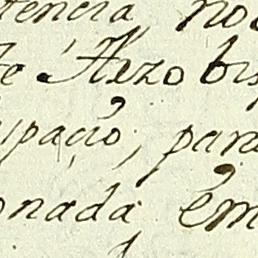 tencia no
te Arzobis
upação, para
onada em